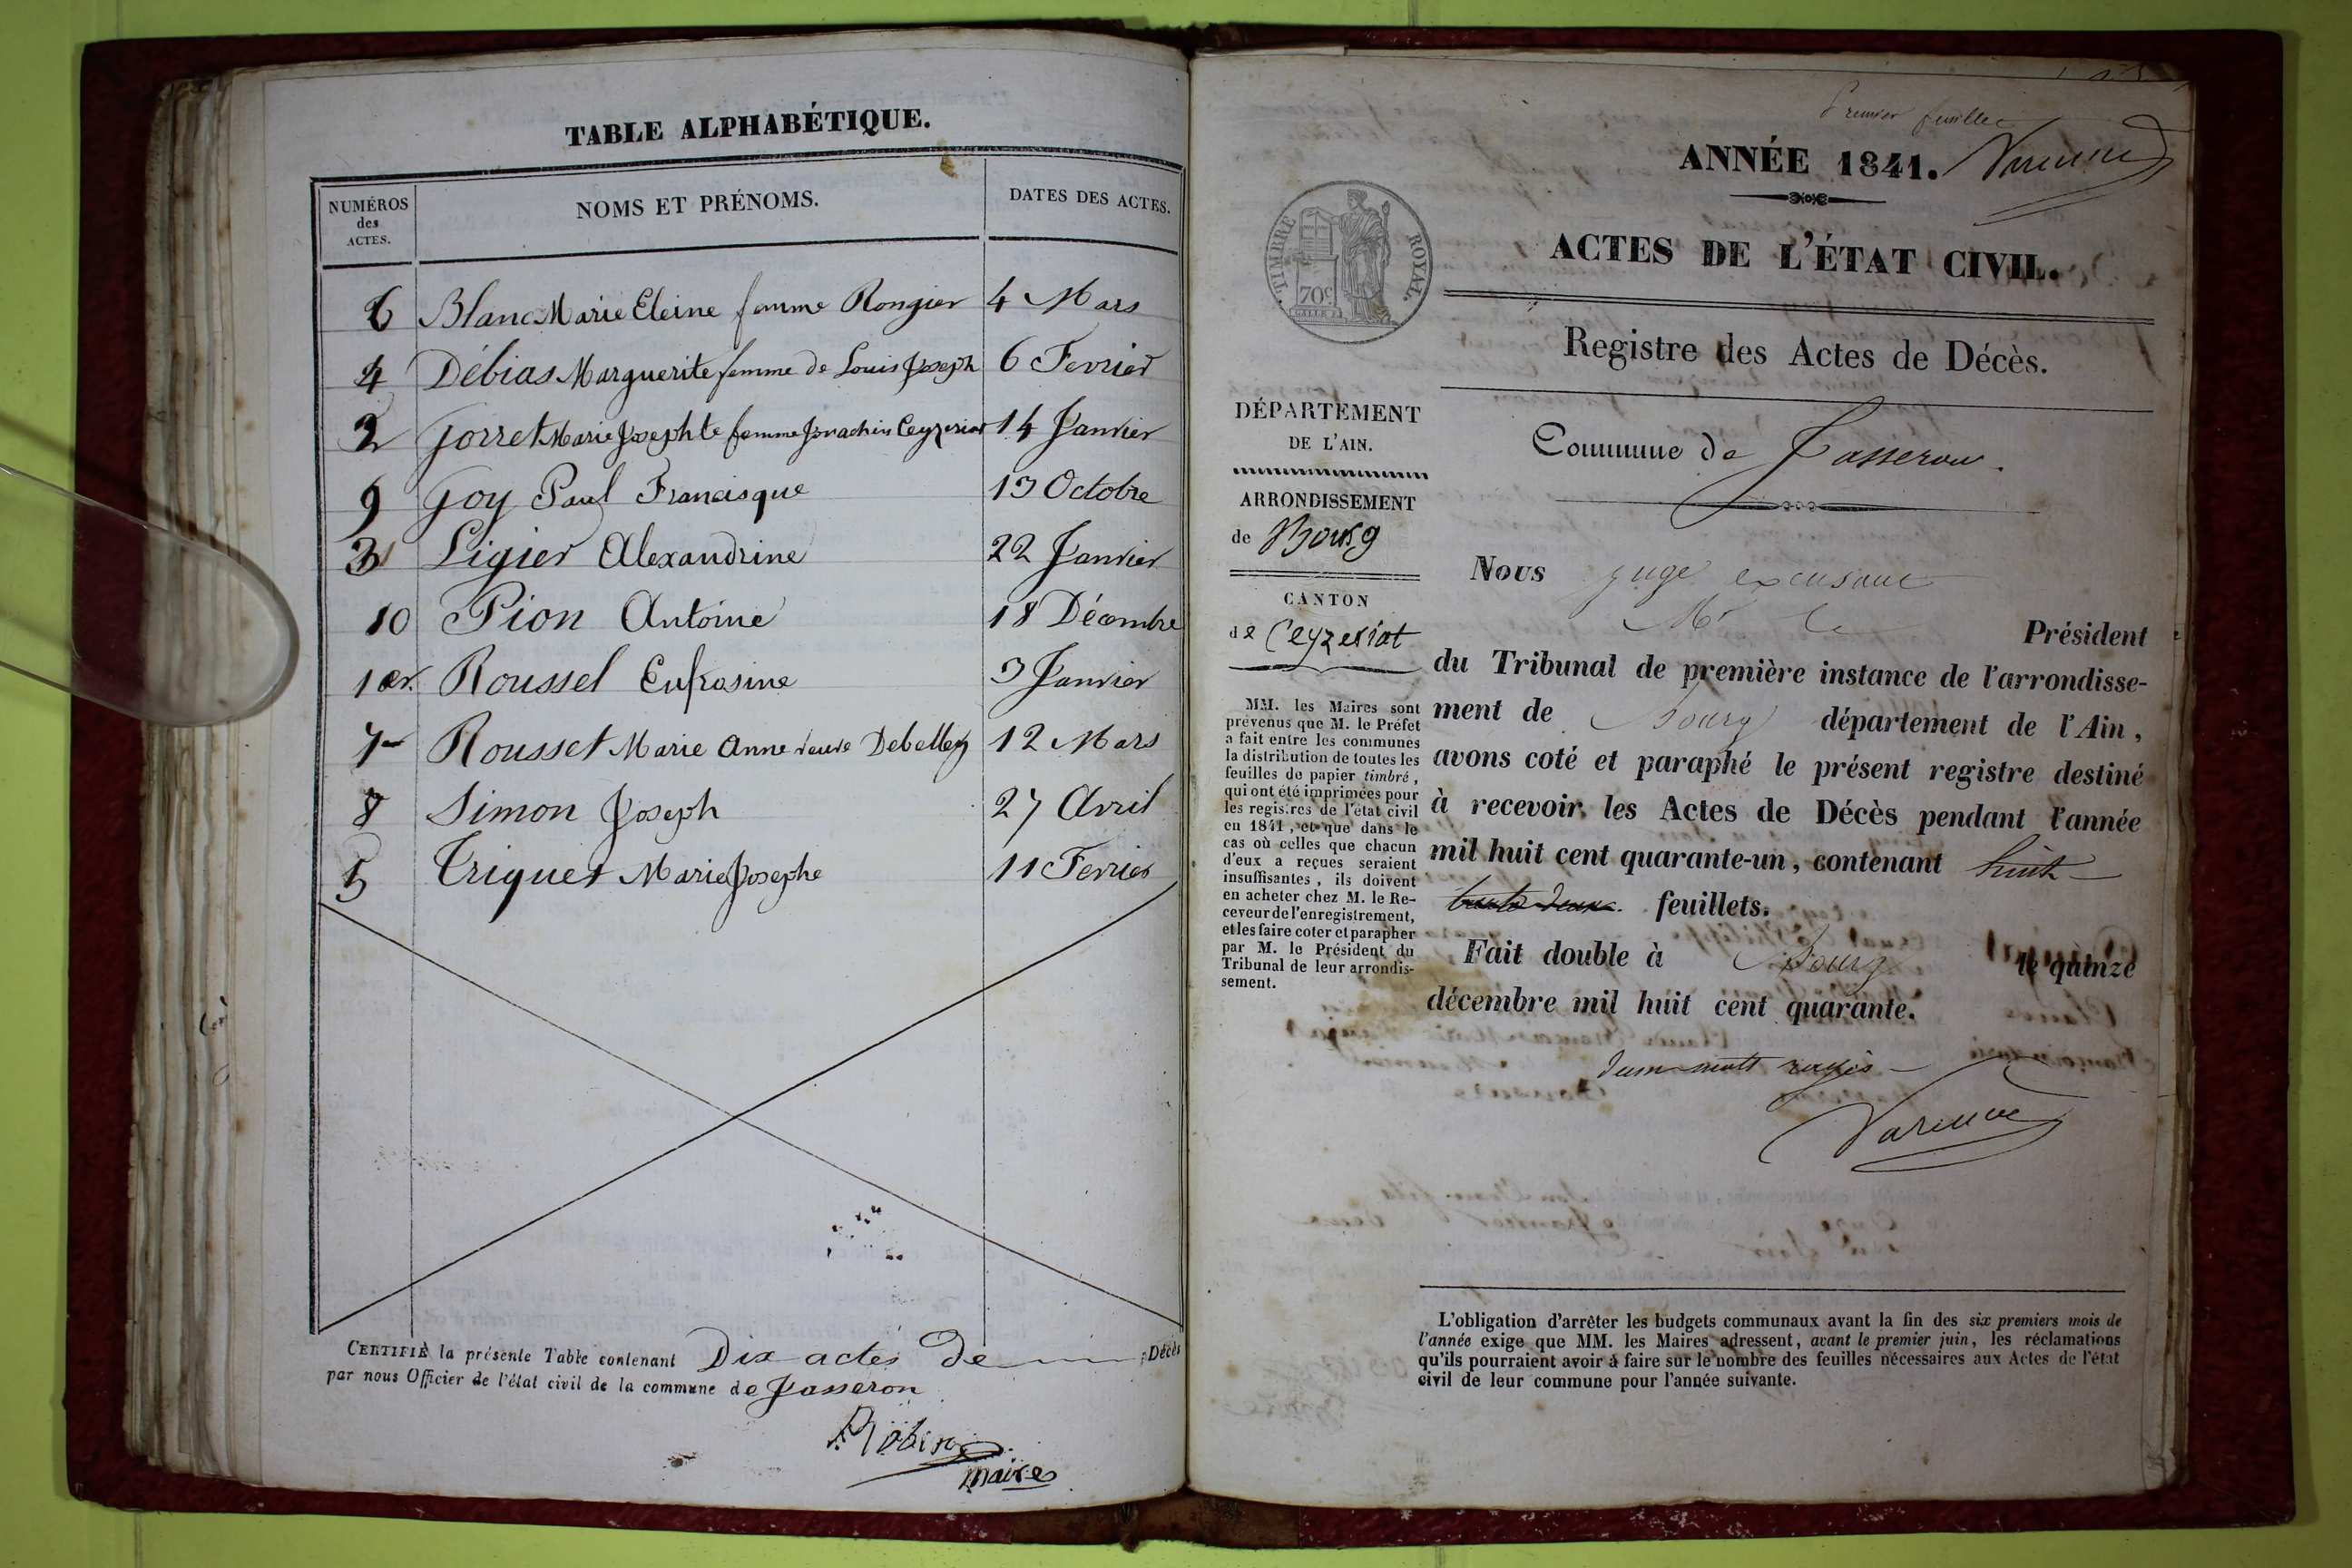 TABLE ALPHABÉTIQUE.
NUMÉROS des ACTES.
NOMS ET PRÉNOMS.
DATES DES ACTES.
6 Blanc Marie Eleine femme Rongier 4 Mars
4 Débias Marguerite femme de Louis Joseph 6 Fevrier
2 Gorret Marie Josephte femme Joachin Ceyzeriat 14 Janvier
9 Goy Paul Francisque 13 Octobre
3 Ligier Alexandrine 22 Janvier
10 Pion Antoine 18 Décembre
1er. Roussel Eufrosine 3 Janvier
7 Rousset Marie Anne veuve Debelley 12 Mars
8 Simon Joseph 27 Avril
5 Triquet Marie Josephe 11 Fevrier
CERTIFIÉ la présente Table contenant Dix actes de Décès
par nous Officier de l'état civil de la commune de Jasseron
Robin
maire
Premier feuillet
ANNÉE 1841.
TIMBRE ROYAL
70c
ACTES DE L'ÉTAT CIVIL.
Registre des Actes de Décès.
DÉPARTEMENT
DE L'AIN.
ARRONDISSEMENT
de Bourg
CANTON
de Ceyzeriat
MM. les Maires sont
prévenus que M. le Préfet
a fait entre les communes
la distribution de toutes les
feuilles de papier timbré,
qui ont été imprimées pour
les registres de l'état civil
en 1841, et que dans le
cas où celles que chacun
d'eux a reçues seraient
insuffisantes, ils doivent
en acheter chez M. le Re-
ceveur de l'enregistrement,
et les faire coter et parapher
par M. le Président du
Tribunal de leur arrondis-
sement.
Commune de Jasseron.
Nous juge excusant
Mr le Président
du Tribunal de première instance de l'arrondisse-
ment de Bourg département de l'Ain,
avons coté et paraphé le présent registre destiné
à recevoir les Actes de Décès pendant l'année
mil huit cent quarante-un, contenant huit
trente deux feuillets.
Fait double à Bourg le quinze
décembre mil huit cent quarante.
deux mots rayés
L'obligation d'arrêter les budgets communaux avant la fin des six premiers mois de
l'année exige que MM. les Maires adressent, avant le premier juin, les réclamations
qu'ils pourraient avoir à faire sur le nombre des feuilles nécessaires aux Actes de l'état
civil de leur commune pour l'année suivante.